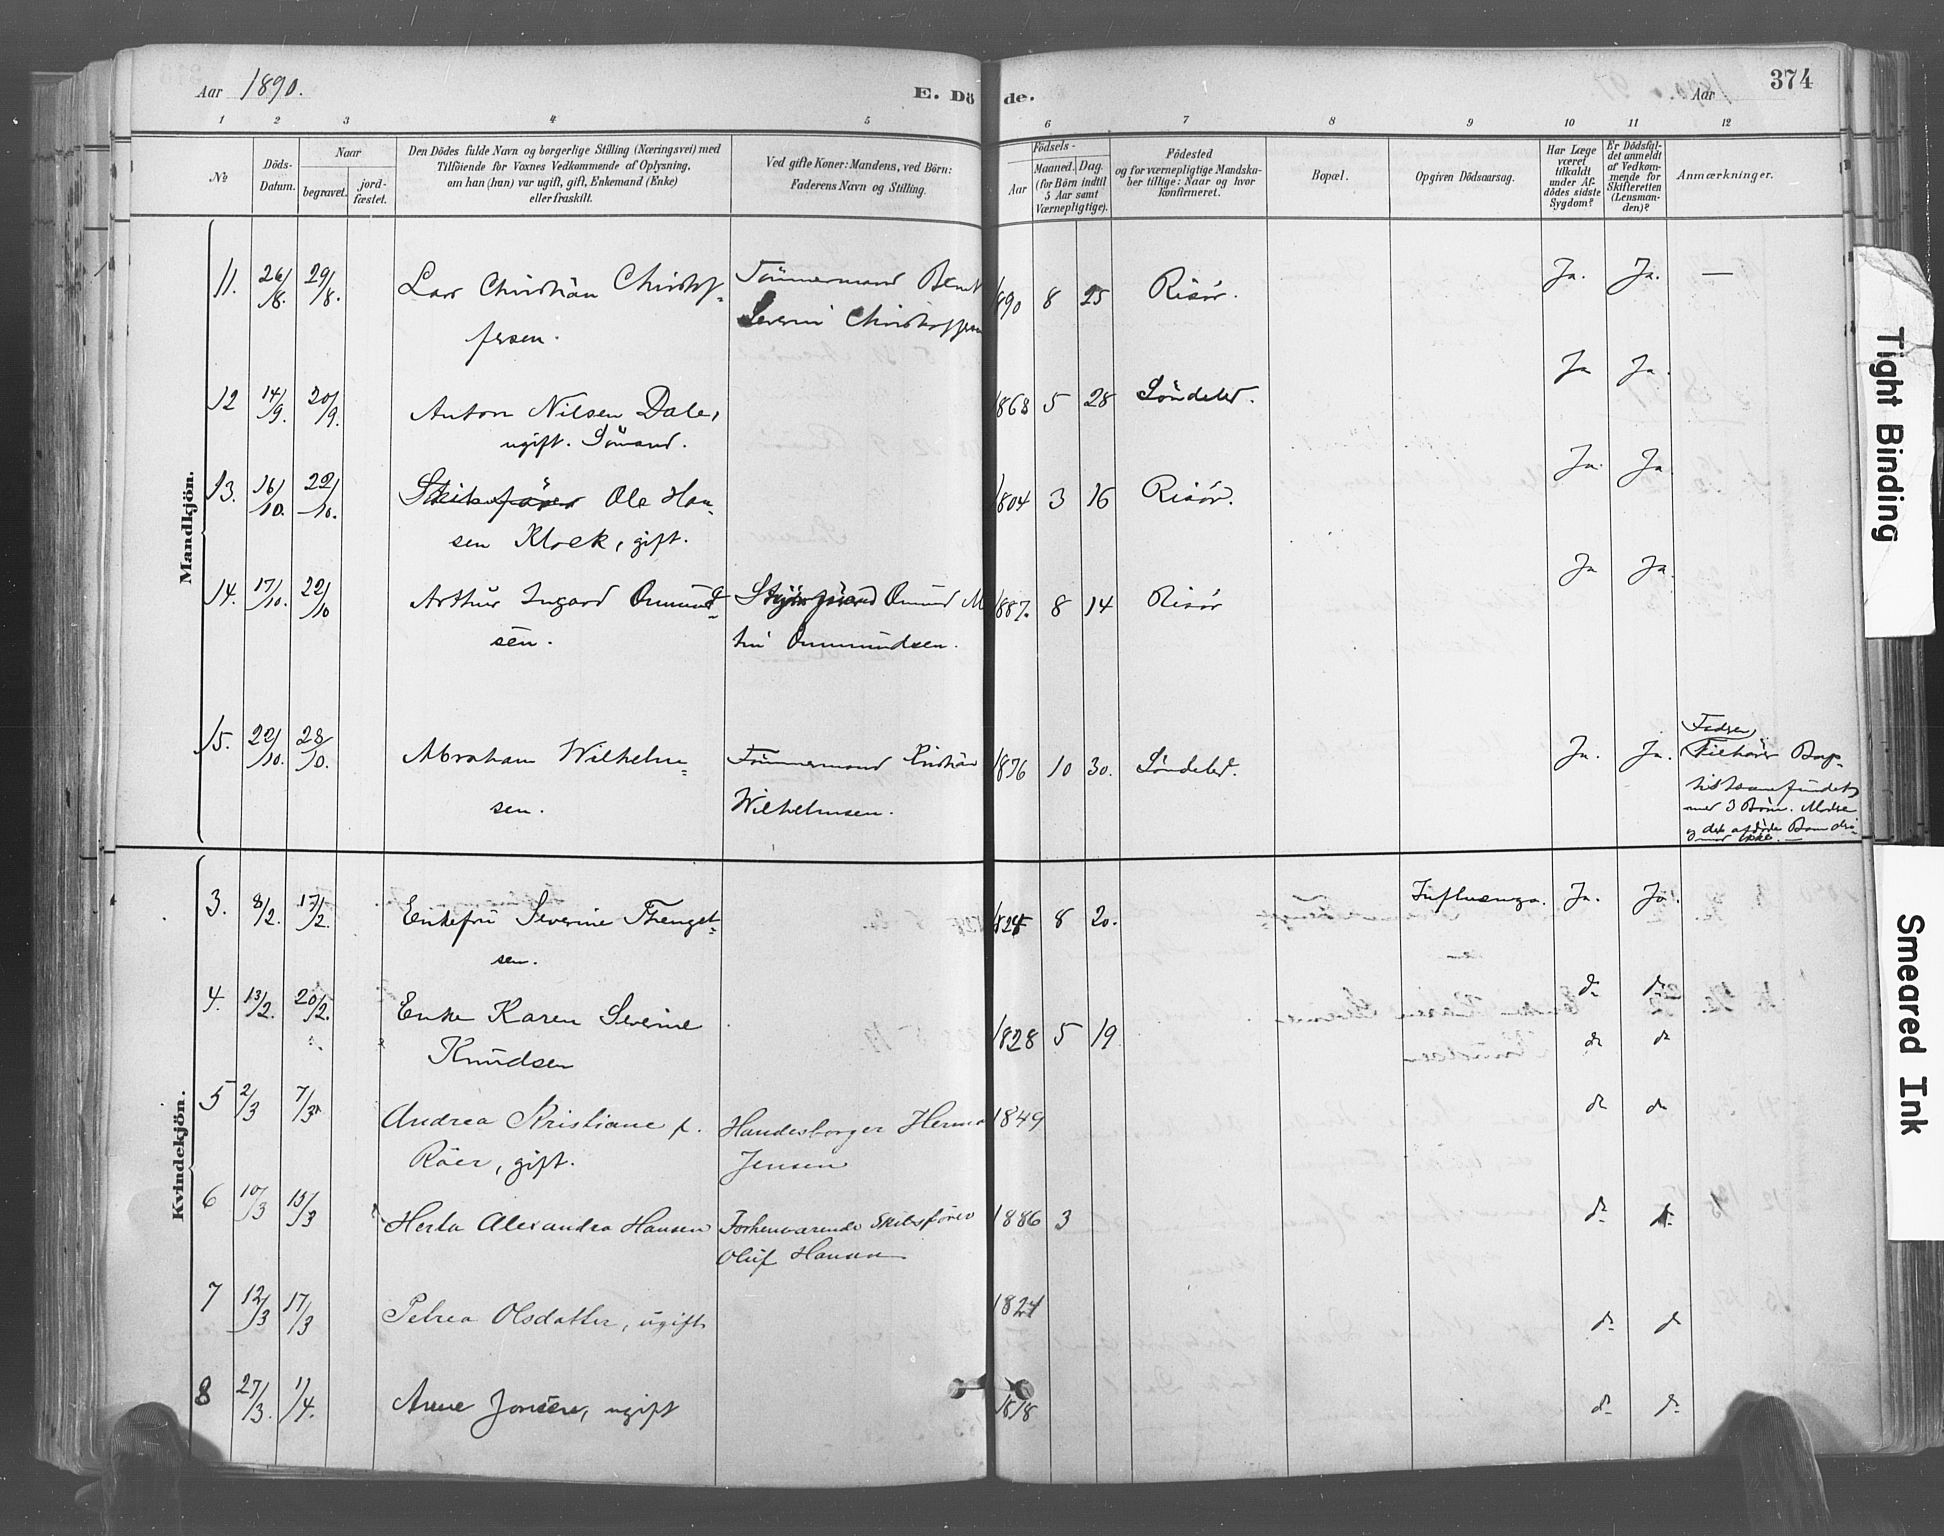 Aar 1890.
E. Dö de.
Aar
374
1 2 3 4 5 6 7 8 9 10 11 12
№
Döds-
Datum.
Naar
begravet.
jord-
fæstet.
Den Dödes fulde Navn og borgerlige Stilling (Næringsvei) med
Tilföiende for Voxnes Vedkommende af Oplysning,
om han (hun) var ugift, gift, Enkemand (Enke)
eller fraskilt.
Ved gifte Koner: Mandens, ved Börn:
Faderens Navn og Stilling.
Födsels-
Aar
Maaned. Dag.
(for Börn indtil
5 Aar samt
Værnepligtige).
Födested
og for værnepligtige Mandska-
ber tillige: Naar og hvor
konfirmeret.
Bopæl.
Opgiven Dödsaarsag.
Har Læge
været
tilkaldt
under Af-
dödes sidste
Sygdom?
Er Dödsfal-
det anmeldt
af Vedkom-
mende for
Skifteretten
(Lensman-
den)?
Anmærkninger.
Mandkjön.
11. 26/8. 29/8. Lars Christian Christof- Tömmermand Bernt 1890 8 25 Risör. Ja. Ja. —
fersen. Severin Christoffersen
12 14/9. 20/9. Anton Nilsen Dale, 1868 5 28 Söndeled. Ja Ja.
ugift. Sömand.
13. 16/10. 22/10. Skibsförer Ole Han- 1804 3 16 Risör. Ja. Ja
sen Klock, gift.
14. 17/10. 22/10 Arthur Ingard Ommund- Omund M 1887. 8 14 Risör Ja Ja.
sen. tin Ommundsen.
15. 22/10. 28/10. Abraham Wilhelm- Tömmermand Kristian 1876 10 30. Söndeled. Ja. Ja. Fader
sen. Wilhelmsen. Tilhörer Bap-
tistsamfundet
med 3 Börn. Moder
og det afdöde Barn
ikke. —
Kvindekjön.
3. 8/2. 17/2. Enkefru Severine Thenget- 1824 8 20. Influenza. Ja. Ja.
sen.
4. 13/2. 20/2. Enke Karen Severine 1828 5 19 do do
Knudsen do do
5 2/3 7/3 Andrea Kristiane f. Handesborger Herma 1849 do do
Röer, gift. Jensen
6 10/3 15/3 Herla Alexandra Hansen Forhenværende Skibsförer 1886 3 do do
Oluf Hansen
7 12/3 17/3 Petrea Olsdatter, ugift 1824 do do
8 27/3. 1/4. Anne Jonsen, ugift 1818 do do
Tight Binding
Smeared Ink